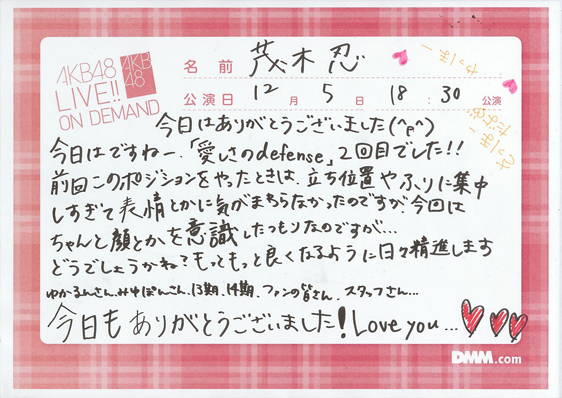 AKB48
LIVE!!
ON DEMAND
AKB
48
名前 茂木忍
公演日 12月5日 18:30公演
やっほー
今日はありがとうございました(^p^)
今日はですねー、「愛しさのdefense」2回目でした!!
前回このポジションをやったときは、立ち位置やふりに集中
しすぎて表情とかに気がまわらなかったのですが、今回は
ちゃんと顔とかを意識したつもりなのですが…
どうでしょうかね?もっともっと良くなるように日々精進します
ゆかるんさん、みゆぽんさん、13期、14期、ファンの皆さん、スタッフさん…
今日もありがとうございました!Love you...
DMM.com